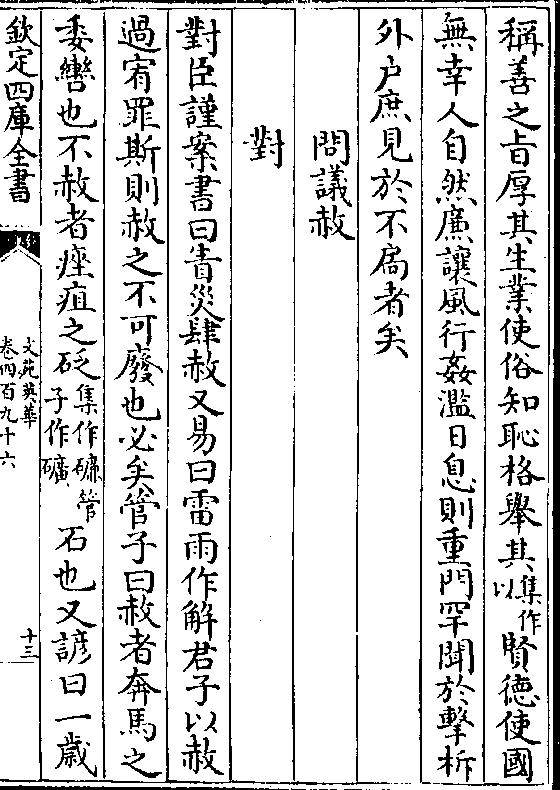 稱善之旨厚其生業使俗知恥格舉其集作以賢德使國
無幸人自然廉讓風行姦濫日息則重門罕聞於擊柝
外户庶見於不扃者矣
問議赦
對
對臣謹案書曰眚災肆赦又易曰雷雨作解君子以赦
過宥罪斯則赦之不可廢也必矣管子曰赦者奔馬之
委轡也不赦者痤疽之砭集作磏管子作礦石也又諺曰一歲
欽定四庫全書
文苑英華
卷四百九十六
十三